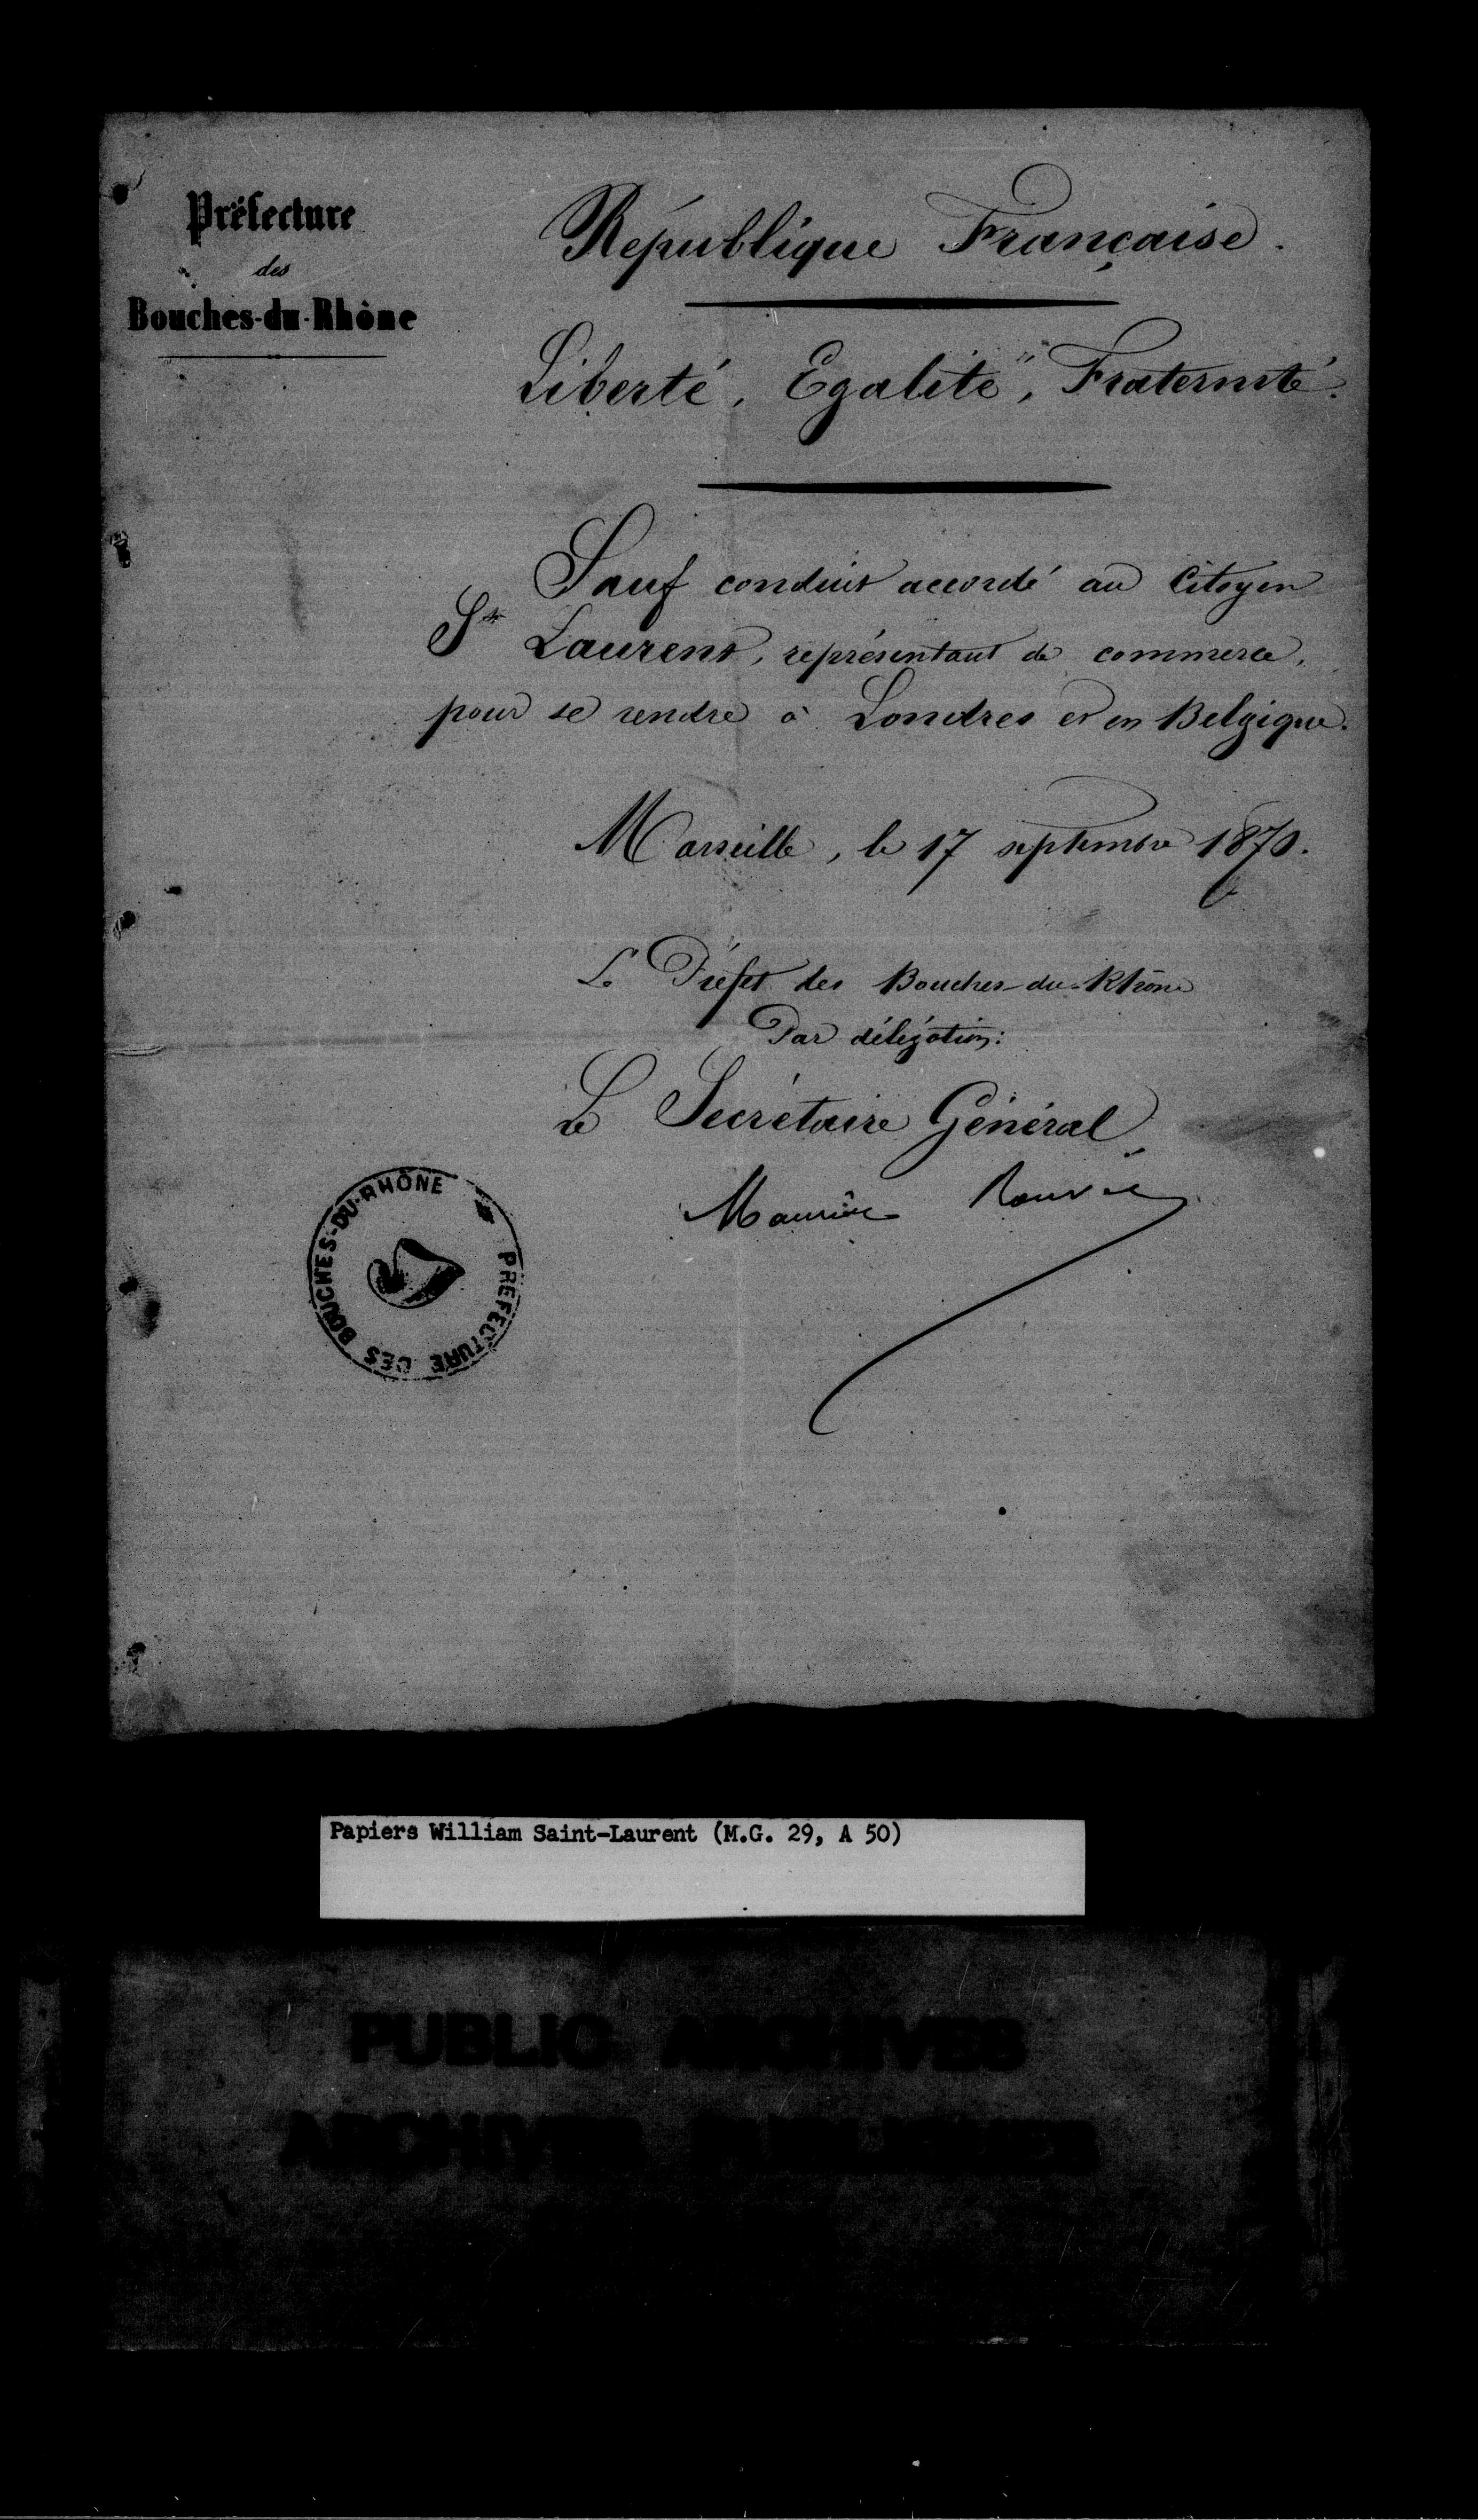 Préfecture
des
Bouches-du-Rhône
République Française.
Liberté, Egalité, Fraternité.
Sauf conduit accordé au Citoyen
St Laurent, représentant de commerce,
pour se rendre à Londres et en Belgique.
Marseille, le 17 septembre 1870.
Le Préfet des Bouches-du-Rhône
Par délégation:
Le Secrétaire Général
Maurice Rouvier
PREFECTURE DES BOUCHES-DU-RHÔNE
Papiers William Saint-Laurent (M.G. 29, A 50)
PUBLIC ARCHIVES
ARCHIVES PUBLIQUES